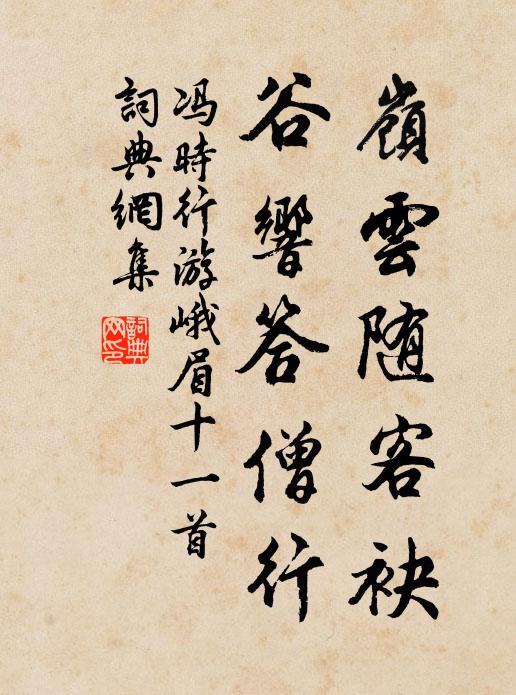 嶺雲隨客袂
谷響答僧行
馮時行游峨眉十一首
詞典網集
詞典網印